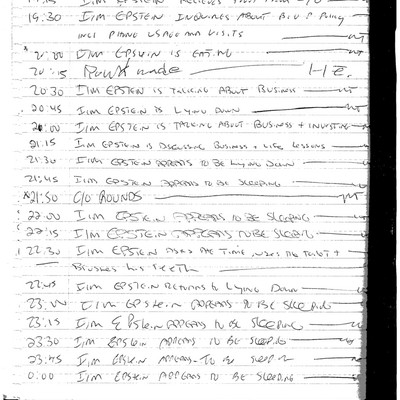 19:30 I/m EPSTEIN INQUIRES ABOUT BOP Policy
INCL PHONE USAGE AND VISITS
*20:00 I/m EPSTEIN IS EATING
20:15 Rounds made HE.
20:30 I/m EPSTEIN IS TALKING ABOUT BUSINESS
20:45 I/m EPSTEIN IS LYING DOWN
20:00 I/m EPSTEIN IS TALKING ABOUT BUSINESS + INVESTING
21:15 I/m EPSTEIN IS DISCUSSING BUSINESS + LIFE LESSONS
21:30 I/m EPSTEIN APPEARS TO BE LYING DOWN
21:45 I/m EPSTEIN APPEARS TO BE SLEEPING
*21:50 C/O ROUNDS
22:00 I/m EPSTEIN APPEARS TO BE SLEEPING
22:15 I/m EPSTEIN APPEARS TO BE SLEEPING
22:30 I/m EPSTEIN ASKS THE TIME, USES THE TOILET +
BRUSHES his TEETH
22:45 I/m EPSTEIN RETURNS TO LYING DOWN
23:00 I/m EPSTEIN APPEARS TO BE SLEEPING
23:15 I/m EPSTEIN APPEARS TO BE SLEEPING
23:30 I/m EPSTEIN APPEARS TO BE SLEEPING
23:45 I/m EPSTEIN APPEARS TO BE SLEEPING
0:00 I/m EPSTEIN APPEARS TO BE SLEEPING